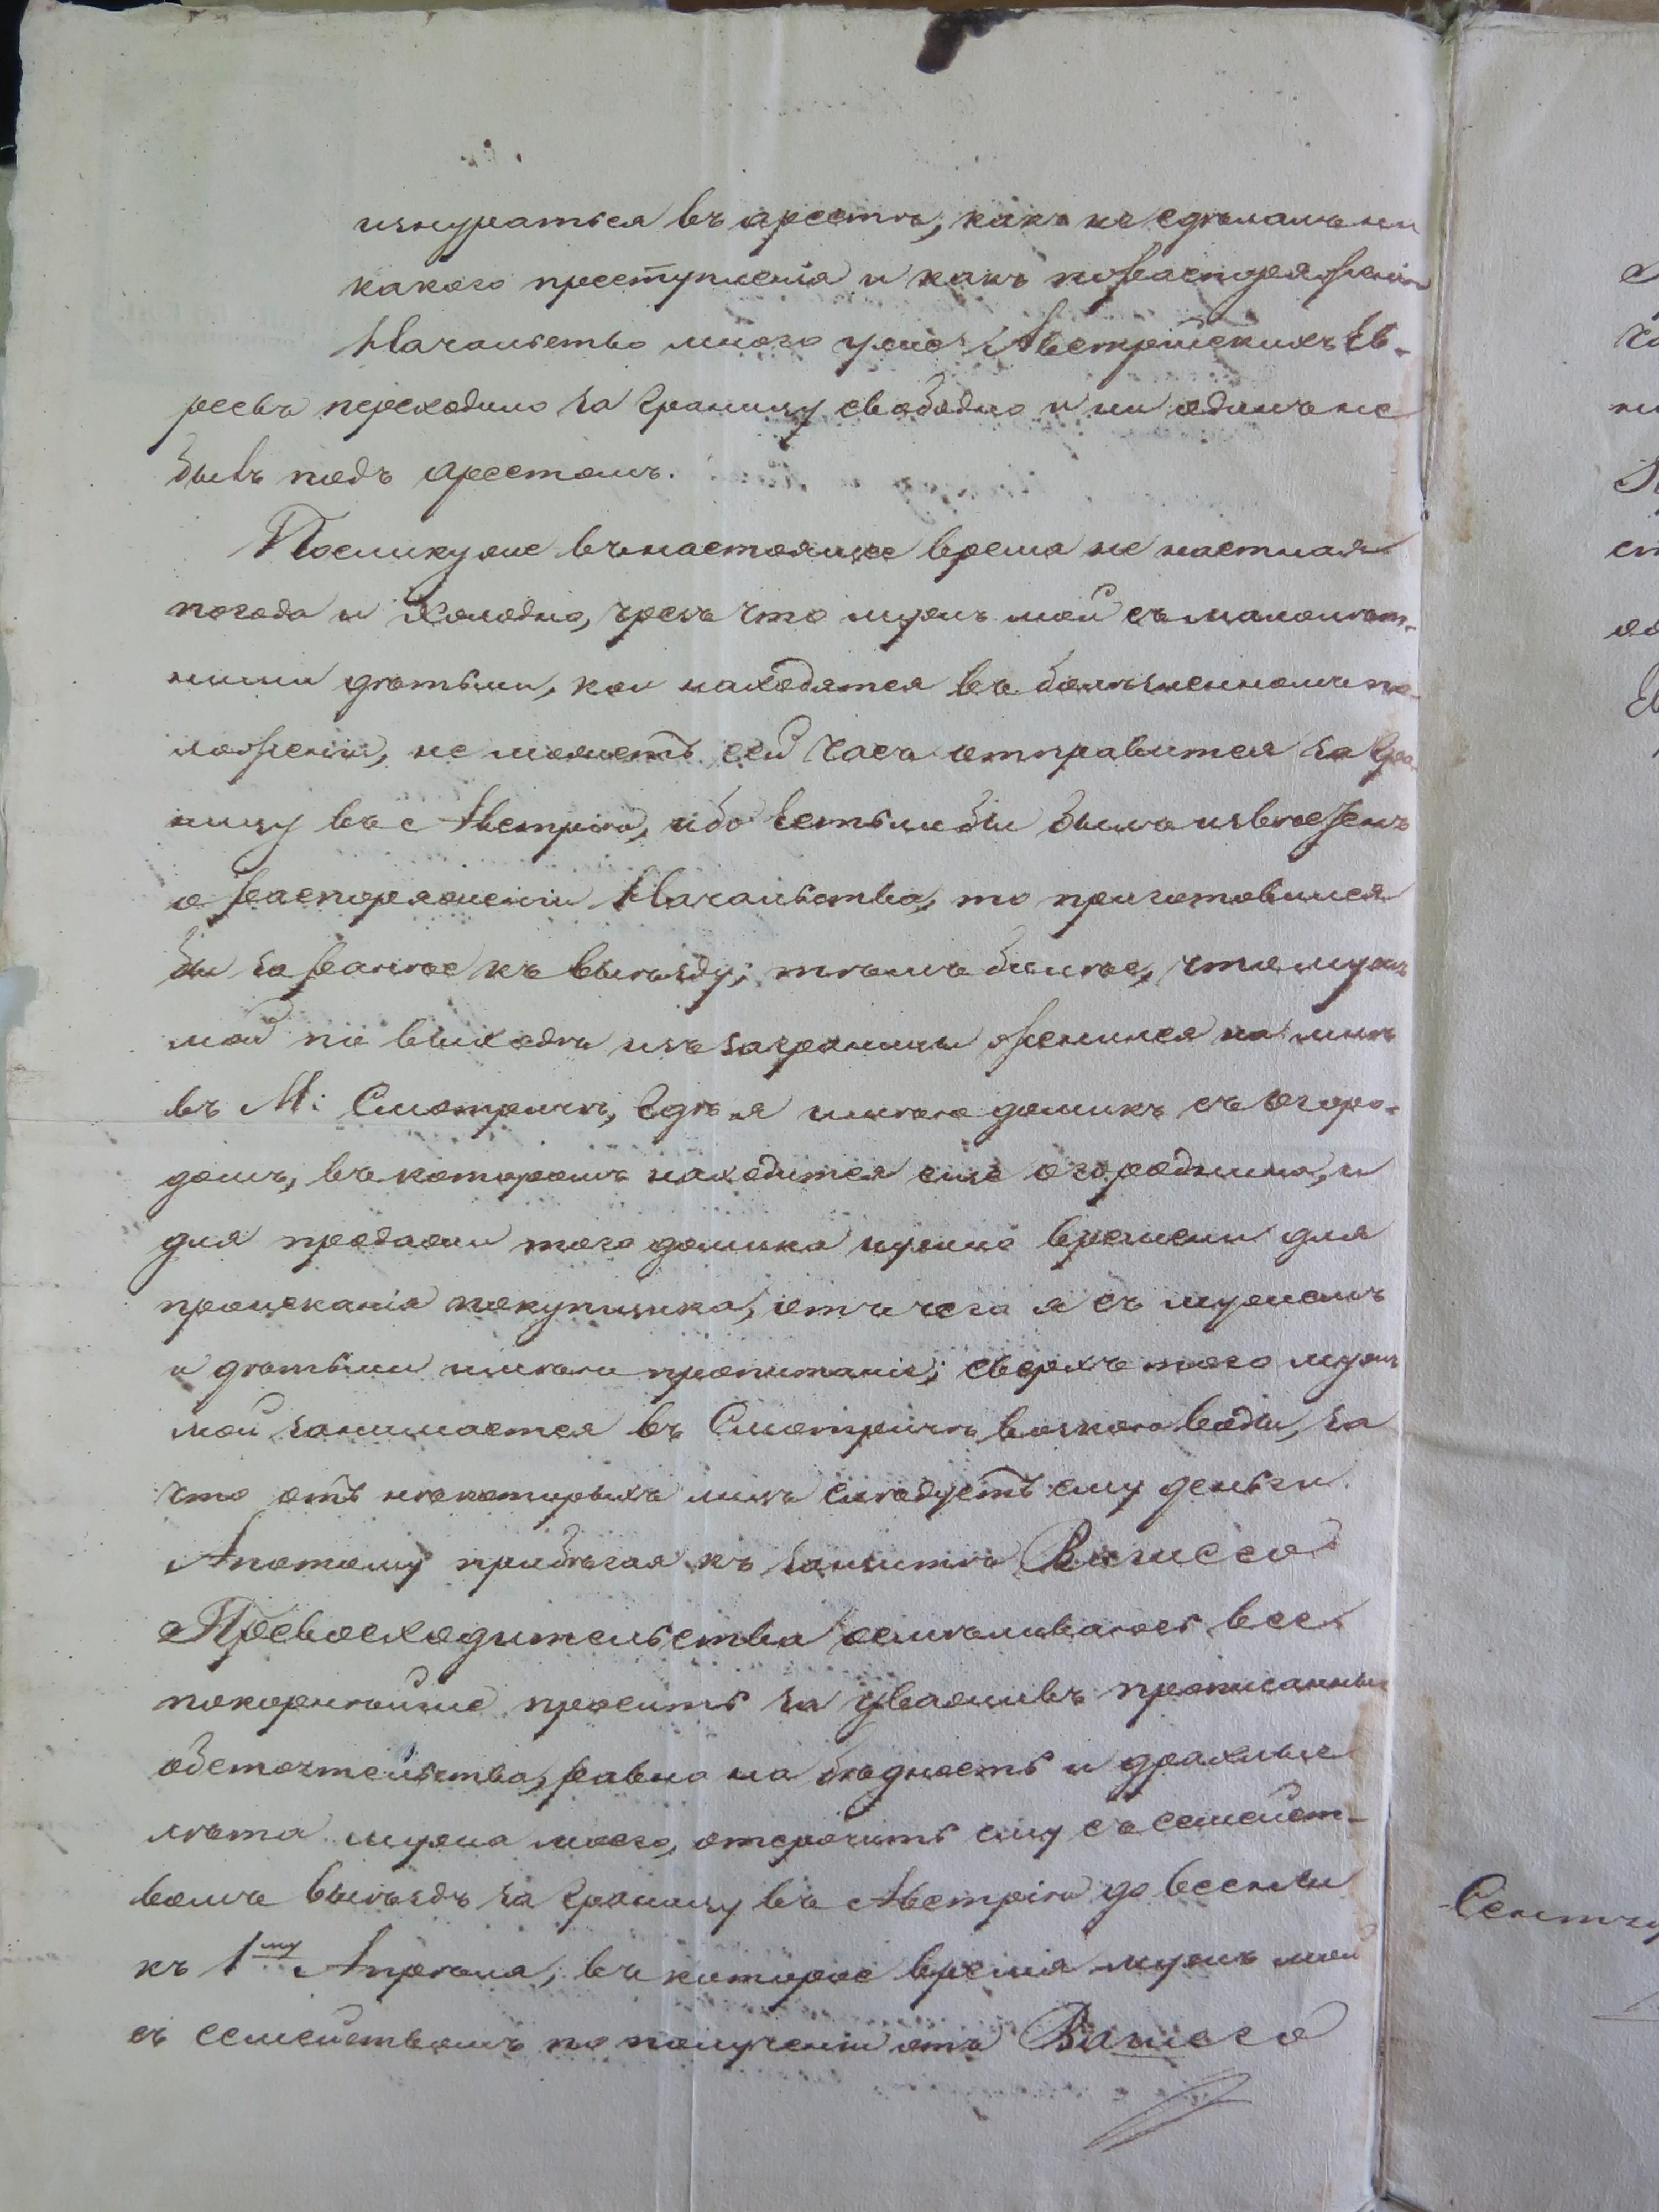 изнуряться въ арестѣ, какъ не сдѣлалъ ни
какого преступленія и какъ по распоряженію
Начальства много уже Австрійскихъ Ев-
реевъ переходило за Границу свободно и ни одинъ не
бывъ подъ арестомъ.
Поелику же въ настоящее время не настная
погода и холодно, чрезъ что мужъ мой съ малолѣт-
ними дѣтьми, кои находятся въ болѣзненномъ по-
ложеніи, не можетъ сей часъ отправится за Гра-
ницу въ Австрію, ибо естьли бы былъ извѣщенъ
о распоряженіи Начальства, то приготовился
бы за ранѣе къ выѣзду; тѣмъ болѣе, что мужъ
мой по выходѣ изъ заграницы женился на мнѣ
въ М: Смотричѣ, Гдѣ я имѣю домикъ съ огоро-
домъ, въ которомъ находится еще огородина, и
для продажи того домика нужно времени для
происканія покупщика, отъ чего я съ мужемъ
и дѣтьми имѣли пропитаніе; сверхъ того мужъ
мой занимается въ Смотричѣ возкою воды, за
что отъ нѣкоторыхъ лицъ слѣдуетъ ему деньги.
А потому прибѣгая къ защитѣ Вашего
Превосходительства осмѣливаюсь все-
покорнѣйше просить за уваживъ прописанные
обстоятельства, равно на бѣдность и дряхлые
лѣта мужа моего, отсрочить ему съ семейст-
вомъ выѣздъ за Границу въ Австрію до весны
къ 1му Апрѣля, въ которое время мужъ мой
съ семействомъ по полученіи отъ Вашего